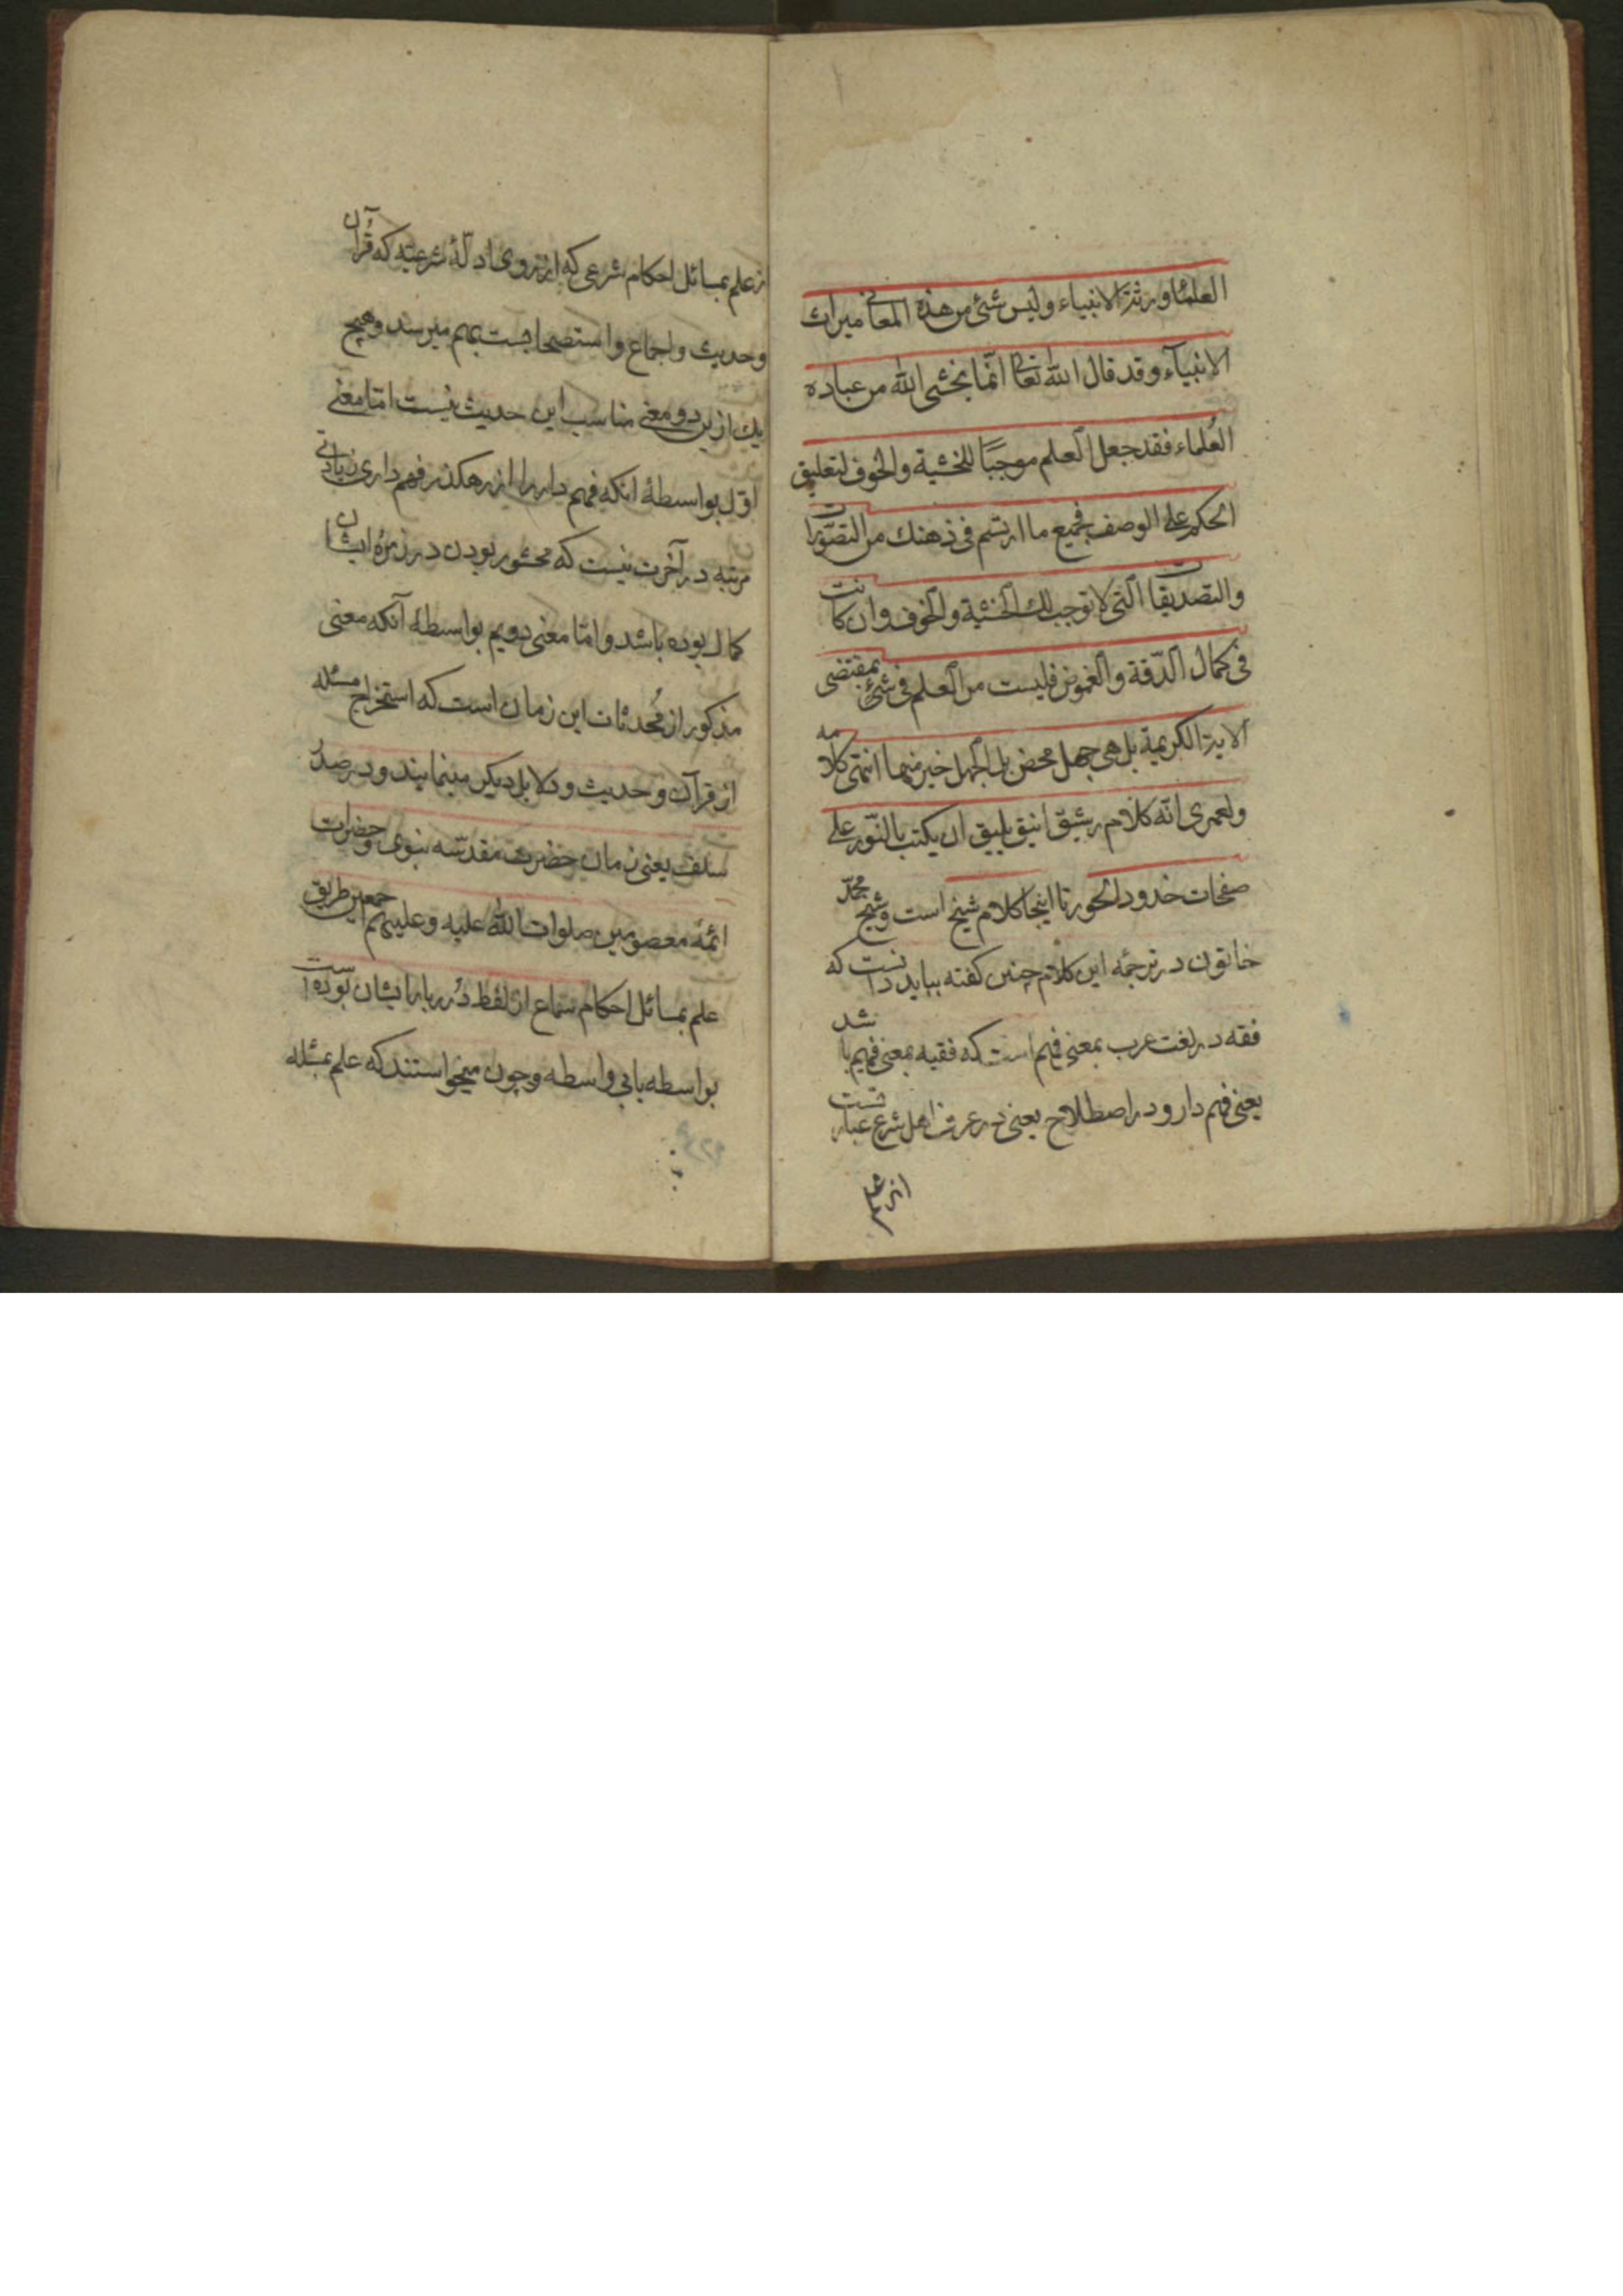 العلماء ورثة الانبياء وليس شئ من هذه المعانى ميراث
الانبيآء وقد قال الله تعالى انّما يخشى الله من عباده
العُلماء فقد جعل العلم موجبًا للخشية والخوف لتعليق
الحكم على الوصف فجميع ما ارتسم فى ذهنك من التصّورات
والتصديقات التى لا توجب لك الخشية والخوف وان كانت
فى كمال الدّقة والغموض فليست من العلم فى شئ بمقتضى
الاية الكريمة بل هى جهل محض بل الجهل خير منها انتهى كلامه
ولعمرى انّه كلام رشيق انيق يليق ان يكتب بالنّور على
صفحات خدود الحور تا اينجا كلام شيخ است وشيخ محمّد
خاتون در ترجمه اين كلام چنين كفته ببايد دانست كه
فقه در لغت عرب بمعنى فهم است كه فقيه بمعنى فهيم باشد
يعنى فهم دار و در اصطلاح يعنى در عرف اهل شرع عبارتست
از علم
از علم بمسائل احكام شرعى كه از روى ادلّهٔ شرعيّه كه قُرآن
وحديث واجماع واستصحابست بهم ميرسد وهيچ
يك ازين دو معنى مناسب اين حديث نيست امّا معنى
اوّل بواسطهٔ انكه فهم دار را از رهكذر فهم دارى زيادتى
مرتبه در آخرت نيست كه محشور بودن در زمرهٔ ايشان
كمال بوده باشد وامّا معنى دويم بواسطهٔ آنكه معنى
مذكور از مُحدثات اين زمان است كه استخراج مسئله
از قرآن وحديث ودلايل ديكر مينمايند ودر صدر
سلف يعنى زمان حضرت مقدّسه نبوى وحضرات
ائمّهٔ معصومين صلوات الله عليه وعليهم اجمعين طريق
علم بمسائل احكام سماع از لفظ دُرر بار ايشان بوده است
بواسطه يا بى واسطه وچون ميخواستند كه علم بمسئله